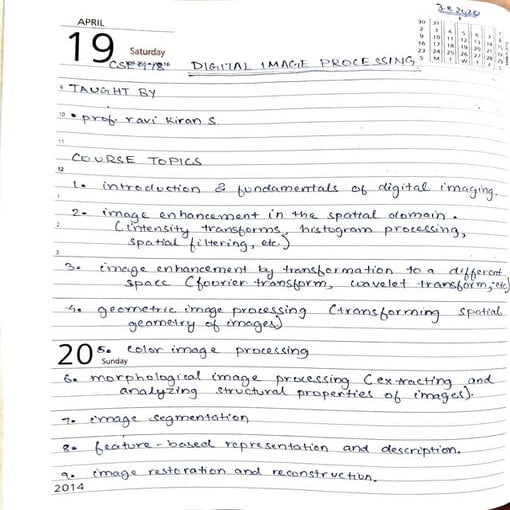 3.8.2020
APRIL
19 Saturday
DIGITAL IMAGE PROCESSING
TAUGHT BY
• prof. ravi kiran s.
COURSE TOPICS
1. introduction & fundamentals of digital imaging.
2. image enhancement in the spatial domain.
(intensity transforms, histogram processing,
spatial filtering, etc.)
3. image enhancement by transformation to a different
space (fourier transform, wavelet transform, etc)
4. geometric image processing (transforming spatial
geometry of images)
20 Sunday
5. color image processing
6. morphological image processing (extracting and
analyzing structural properties of images).
7. image segmentation
8. feature-based representation and description.
9. image restoration and reconstruction.
2014